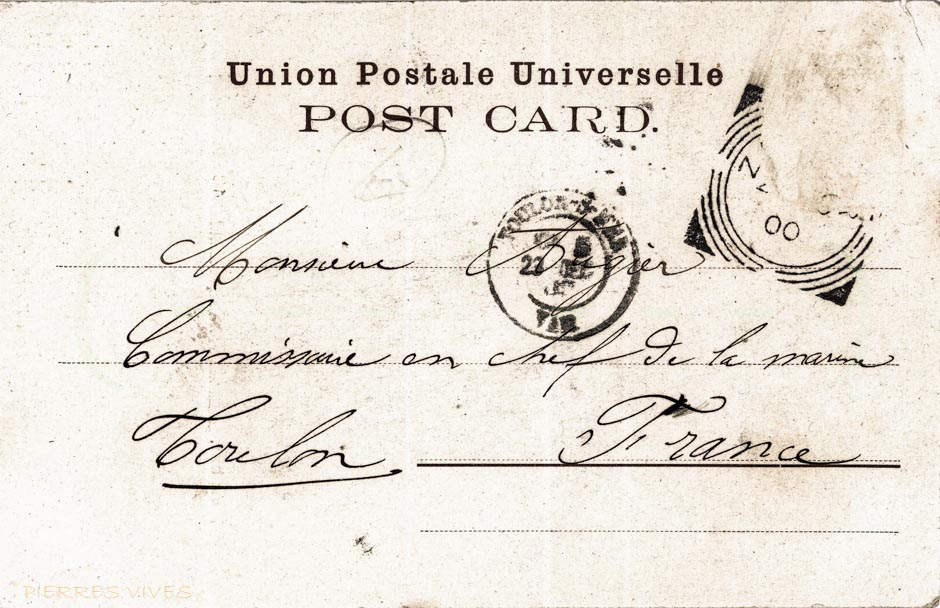 Union Postale Universelle
POST CARD.
00
TOULON-S-MER
22
VAR
Monsieur Rogier
Commissaire en chef de la marine
Toulon France
PIERRES VIVES